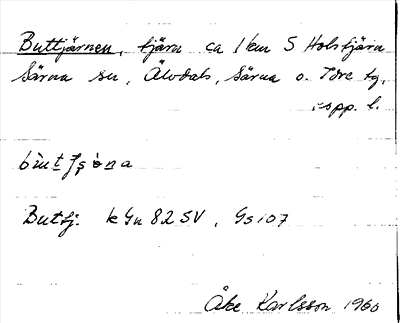 Buttjärnen, tjärn ca 1 km S Holstjärn
Särna sn, Älvdals, Särna o. Idre tg,
Kopp. l.
Buttj. k Gn 82 SV, Gs 107
Åke Karlsson 1960